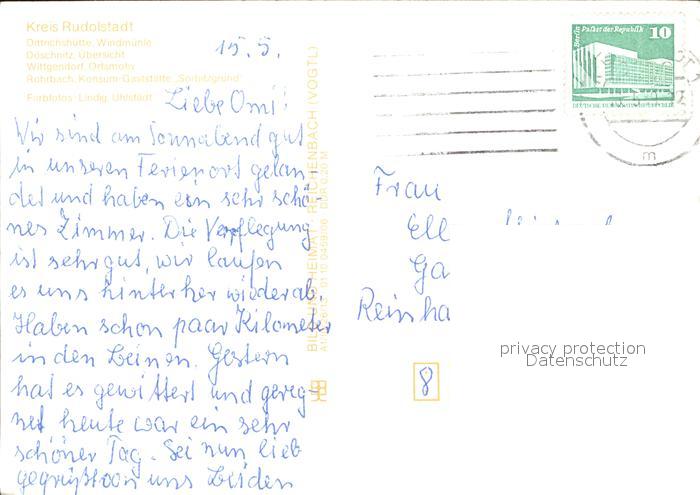 Kreis Rudolstadt
Dittrichshütte, Windmühle
Döschnitz, Übersicht
Wittgendorf, Ortsmotiv
Rohrbach, Konsum-Gaststätte „Sorbitzgrund"
Farbfotos: Lindig, Uhlstädt
15. 5.
Liebe Omi!
Wir sind am Sonnabend gut
in unseren Ferienort gelan-
det und haben ein sehr schö-
nes Zimmer. Die Verpflegung
ist sehr gut, wir laufen
es uns hinterher wieder ab.
Haben schon paar Kilometer
in den Beinen. Gestern
hat es gewittert und gereg-
net heute war ein sehr
schöner Tag. Sei nun lieb
gegrüßt von uns Beiden
BILD UND HEIMAT REICHENBACH (VOGTL)
Berlin Palast der Republik
10
DEUTSCHE DEMOKRATISCHE REPUBLIK
m
Frau
Ell
Ga
Reinha
8
privacy protection
Datenschutz